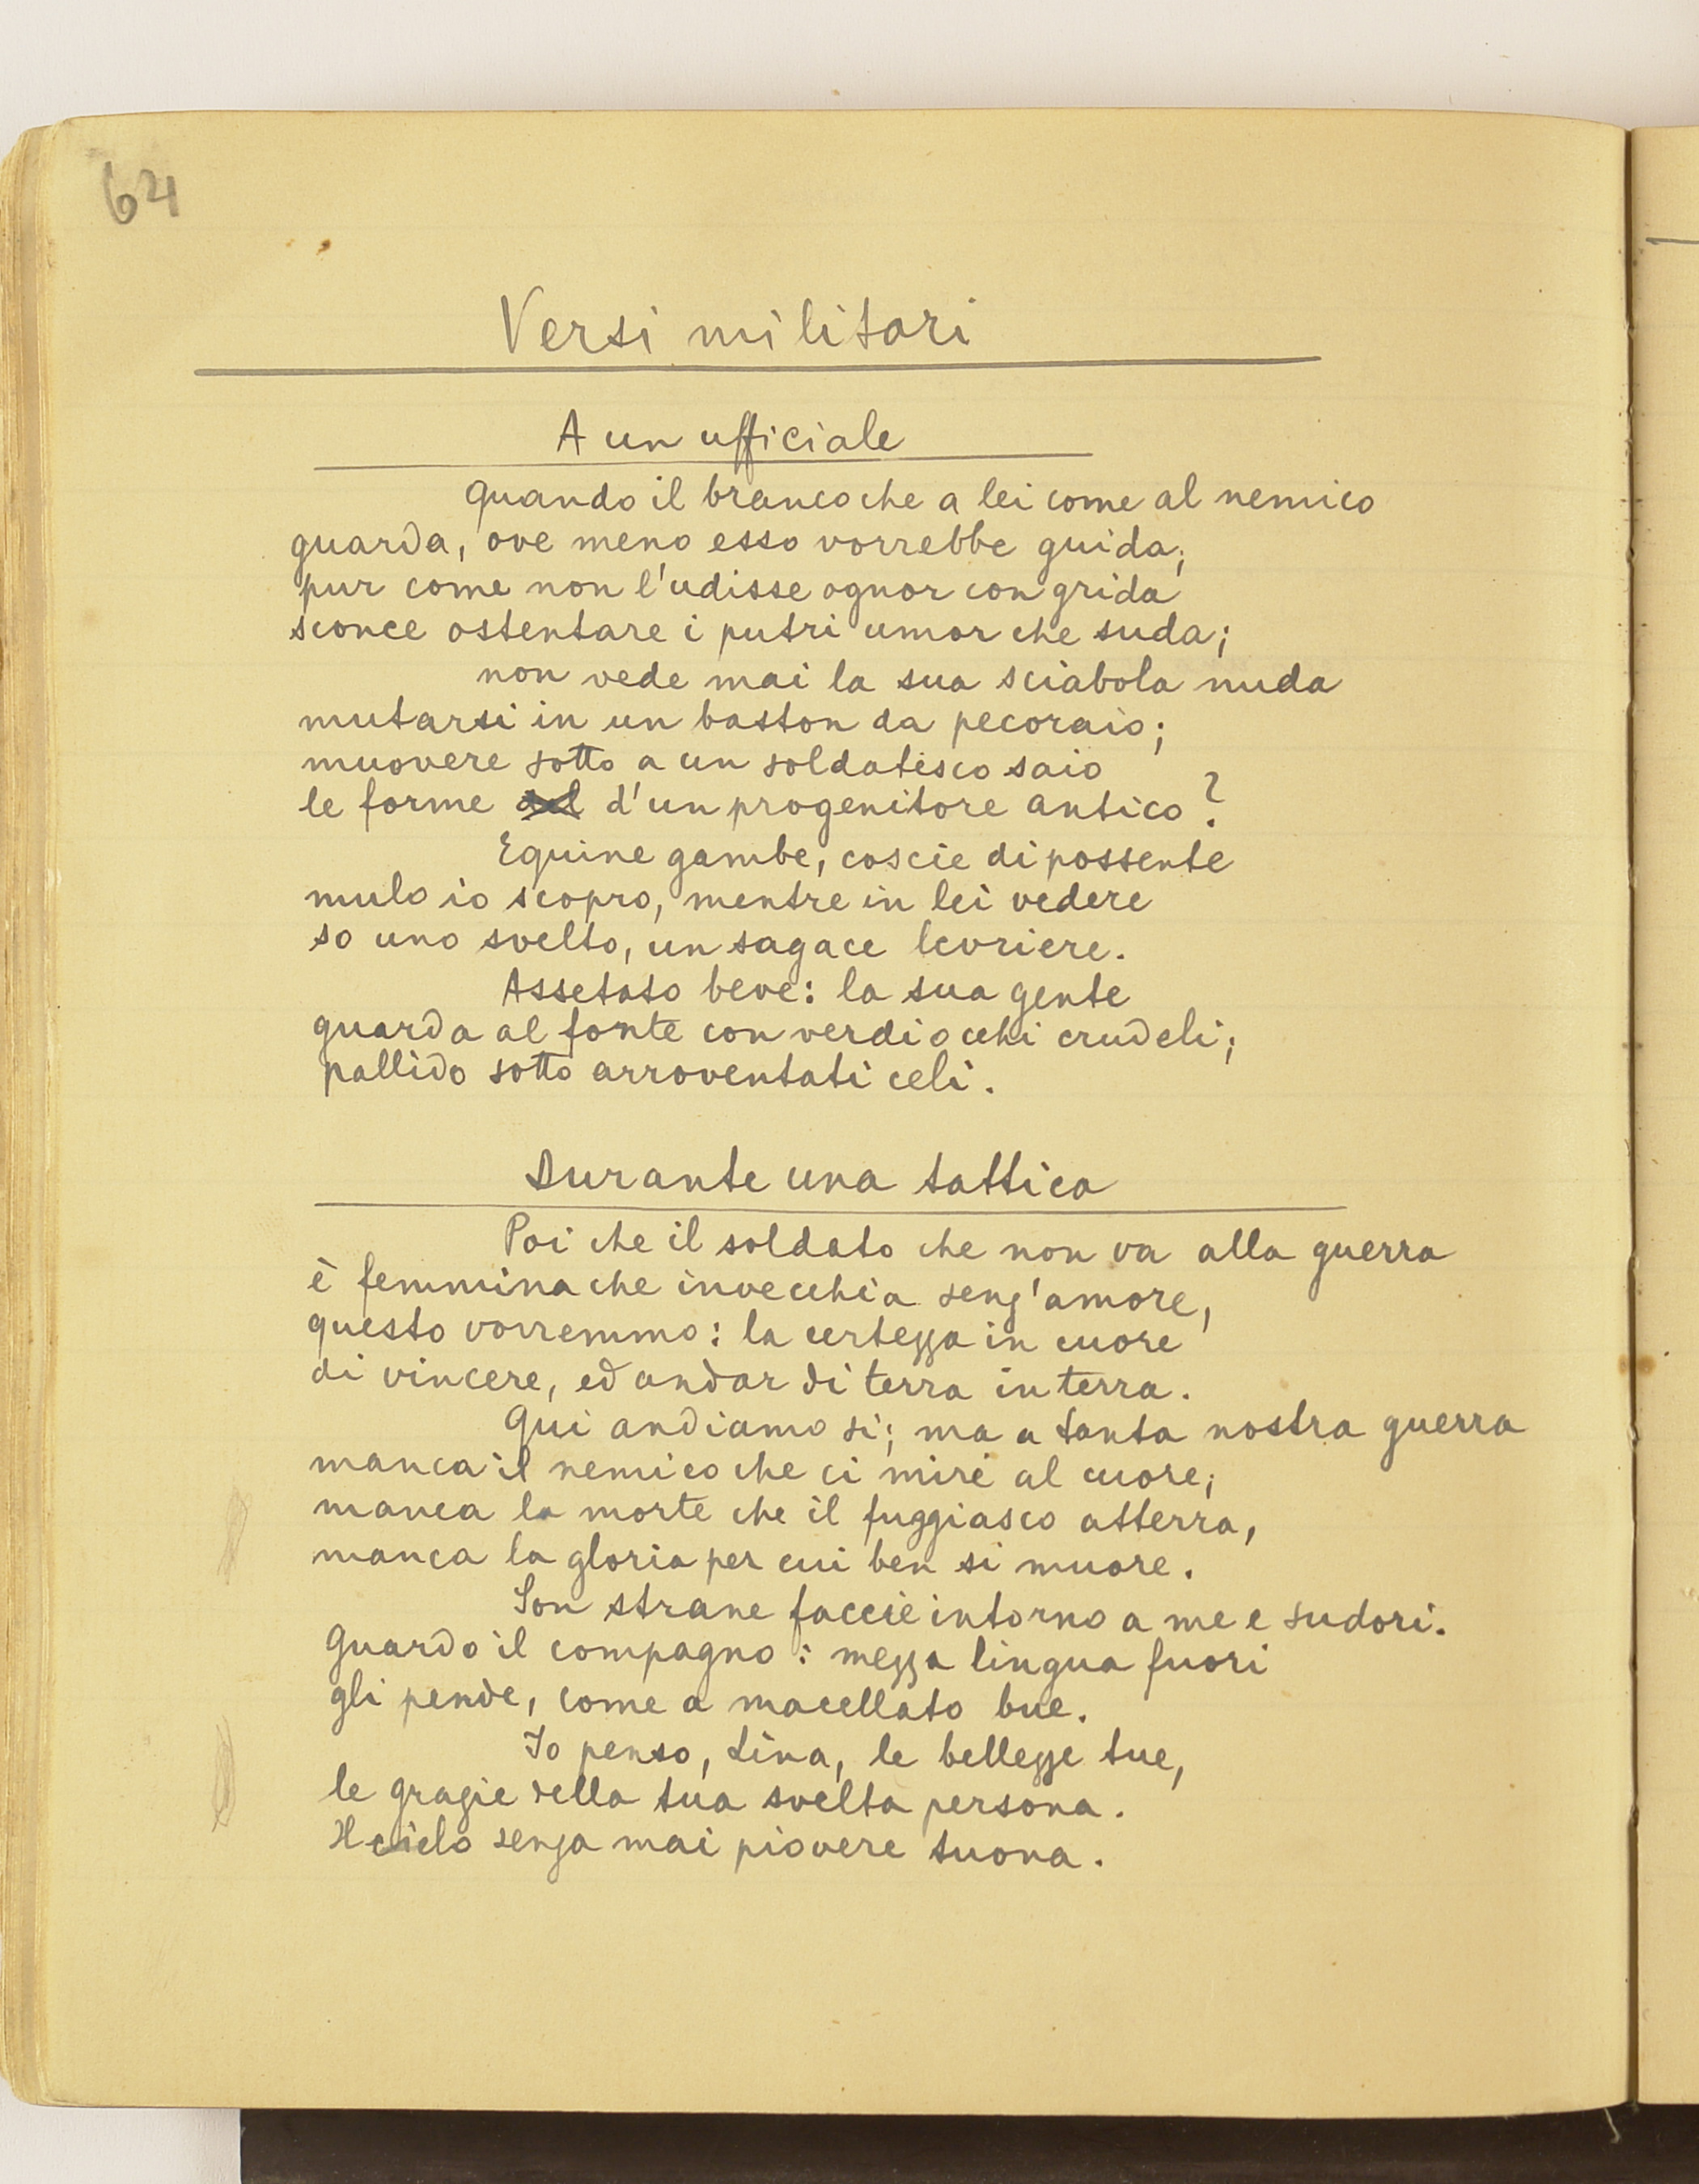 64
Versi militari
A un ufficiale
Quando il branco che a lei come al nemico
guarda, ove meno esso vorrebbe guida;
pur come non l'udisse ognor con grida
sconce ostentare i putri umor che suda;
non vede mai la sua sciabola nuda
mutarsi in un baston da pecoraio;
muovere sotto a un soldatesco saio
le forme del d'un progenitore antico?
Equine gambe, coscie di possente
mulo io scopro, mentre in lei vedere
so uno svelto, un sagace levriere.
Assetato beve: la sua gente
guarda al fonte con verdi occhi crudeli;
pallido sotto arroventati celi.
Durante una tattica
Poi che il soldato che non va alla guerra
è femmina che invecchia senz'amore,
questo vorremmo: la certezza in cuore
di vincere, ed andar di terra in terra.
Qui andiamo si; ma a tanta nostra guerra
manca il nemico che ci miri al cuore;
manca la morte che il fuggiasco atterra,
manca la gloria per cui ben si muore.
Son strane faccie intorno a me e sudori.
Guardo il compagno: mezza lingua fuori
gli pende, come a macellato bue.
Io penso, Lina, le bellezze tue,
le grazie della tua svelta persona.
Il cielo senza mai piovere tuona.